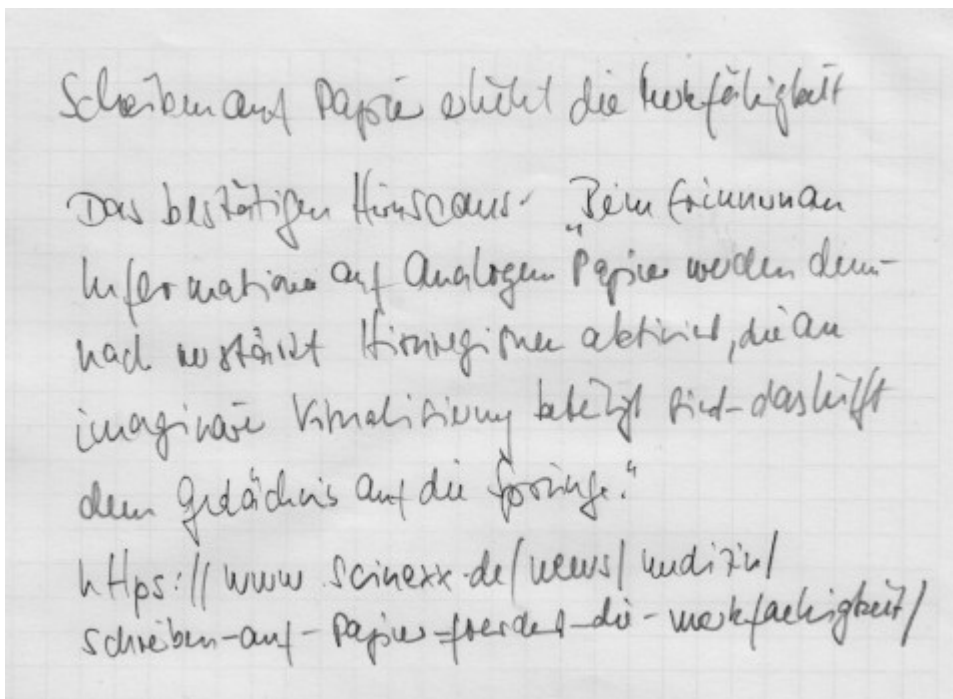 Schreiben auf Papier erhöht die Merkfähigkeit
Das bestätigen Hirnscans. „Beim Erinnern an
Informationen auf Analogem Papier werden dem-
nach verstärkt Hirnregionen aktiviert, die an
imaginärer Visualisierung beteiligt sind - das hilft
dem Gedächnis auf die Sprünge.“
https://www.scinexx.de/news/medizin/
schreiben-auf-Papier-foerdert-die-merkfaehigkeit/